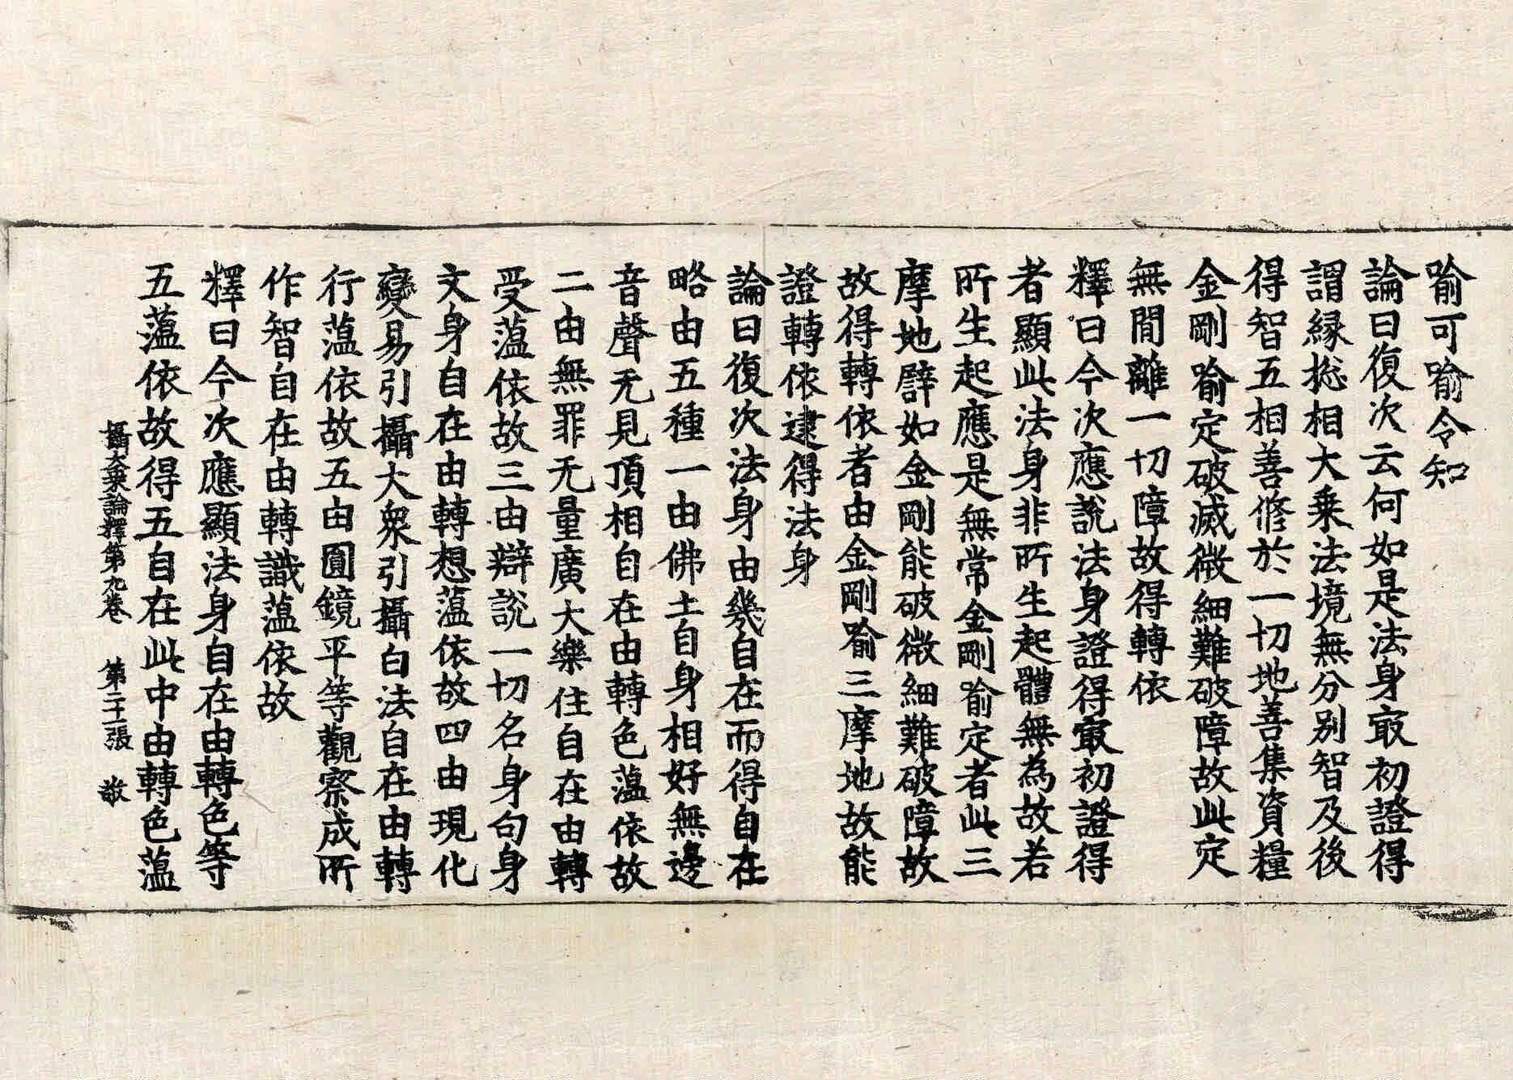 喻可喻令知
論曰復次云何如是法身㝡初證得
謂緣捴相大乗法境無分別智及後
得智五相善修於一切地善集資糧
金剛喻定破滅微細難破障故此定
無間離一切障故得轉依
釋曰今次應說法身證得㝡初證得
者顯此法身非所生起體無為故若
所生起應是無常金剛喻定者此三
摩地譬如金剛能破微細難破障故
故得轉依者由金剛喻三摩地故能
證轉依逮得法身
論曰復次法身由幾自在而得自在
略由五種一由佛土自身相好無邊
音聲无見頂相自在由轉色薀依故
二由無罪无量廣大樂住自在由轉
受薀依故三由辯說一切名身句身
文身自在由轉想薀依故四由現化
變易引攝大衆引攝白法自在由轉
行薀依故五由圓鏡平等觀察成所
作智自在由轉識薀依故
釋曰今次應顯法身自在由轉色等
五薀依故得五自在此中由轉色薀
攝大乗論釋第九卷 第二十張 敬